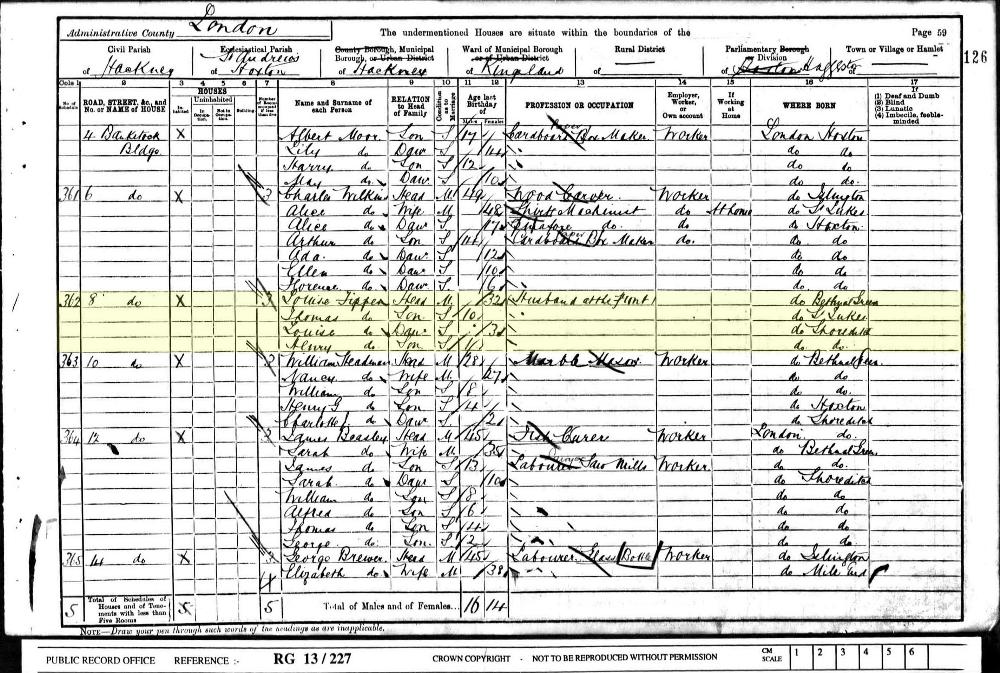 Administrative County London The undermentioned Houses are situate within the boundaries of the Page 59
Civil Parish Ecclesiastical Parish County Borough, Municipal Borough, or Urban District Ward of Municipal Borough or of Urban District Rural District Parliamentary Borough Division Town or Village or Hamlet
of Hackney of St Andrews Hoxton of Hackney of Kingsland of of of
126
Cols 1 2 3 4 5 6 7 8 9 10 11 12 13 14 15 16 17
ROAD, STREET, &c., and No. or NAME of HOUSE HOUSES Uninhabited Name and Surname of each Person RELATION to Head of Family Condition as to Marriage Age last Birthday of Males Females PROFESSION OR OCCUPATION Employer, Worker, or Own account If Working at Home WHERE BORN If (1) Deaf and Dumb (2) Blind (3) Lunatic (4) Imbecile, feeble-minded
4 Bldgs X Albert Moor Son S 17 Cardboard Box Maker Worker London Hoxton
Lily do Daur S 14 do do
Harry do Son S 12 do do
May do Daur S 10 do do
361 6 do X 3 Charles Wilkins Head M 49 Wood Carver Worker do Islington
Alice do Wife M 48 Shirt Machinist do At home do St Lukes
Alice do Daur S 17 do do do Hoxton
Arthur do Son S 14 Cardboard Box Maker do do do
Ada do Daur S 12 do do
Ellen do Daur S 10 do do
Florence do Daur S 6 do do
362 8 do X 3 Louise Tippen Head M 32 Husband at the front do Bethnal Green
Thomas do Son S 10 do St Lukes
Louise do Daur S 3 do Shoreditch
Henry do Son S do do
363 10 do X 2 William Steadman Head M 28 Marble Mason Worker do Bethnal Green
Nancy do Wife M 27 do do
William do Son S 8 do do
Henry G do Son S 4 do Hoxton
Charlotte do Daur S 2 do Shoreditch
364 12 do X 2 James Beasley Head M 45 Fish Curer Worker London do
Sarah do Wife M 35 do Bethnal Green
James do Son S 13 Labourer Saw Mills Worker do do
Sarah do Daur S 10 do Shoreditch
William do Son S 8 do do
Alfred do Son S 6 do do
Thomas do Son S 4 do do
George do Son S 2 do do
365 14 do X 3 George Brewer Head M 45 Labourer Glass Bottle Worker do Islington
Elizabeth do Wife M 38 do Mile End
5 Total of Schedules of Houses and of Tenements with less than Five Rooms 5 5 Total of Males and of Females... 16 14
NOTE—Draw your pen through such words of the headings as are inapplicable.
PUBLIC RECORD OFFICE REFERENCE :- RG 13 / 227 CROWN COPYRIGHT - NOT TO BE REPRODUCED WITHOUT PERMISSION CM SCALE 1 2 3 4 5 6